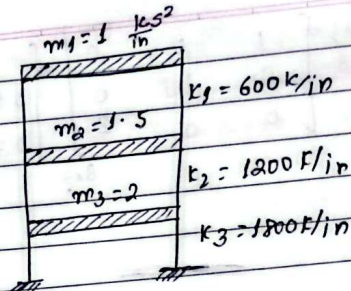 m1 = 1 ks²/in
k1 = 600 k/in
m2 = 1.5
k2 = 1200 k/in
m3 = 2
k3 = 1800 k/in